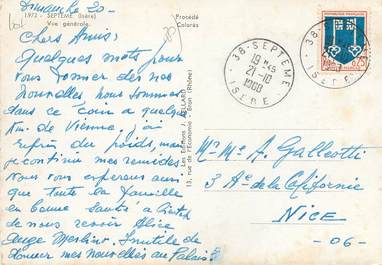 Dimanche 20-
1973 - SEPTEME (Isère)
Vue générale
Procédé
Colorès
Chers Amis;
Quelques mots pour
vous donner des nos
nouvelles nous sommes
dans ce coin a quelques
Km. de Vienne, j'ai
repris du poids, mais
je continu mes remèdes.
Nous vous esperons ainsi
que toute la famille
en bonne santé a
de nous revoir
Inutile de
donner mes nouvelles au Palais
Les Editions
13, rue de l'Economie - Bron (Rhône)
38-SEPTEME
19H45
21-10
1968
ISERE
38-SEPTEME
ISERE
0,25
Mr Me A. Galleotti
3 Ae de la Californie
NICE
-06-